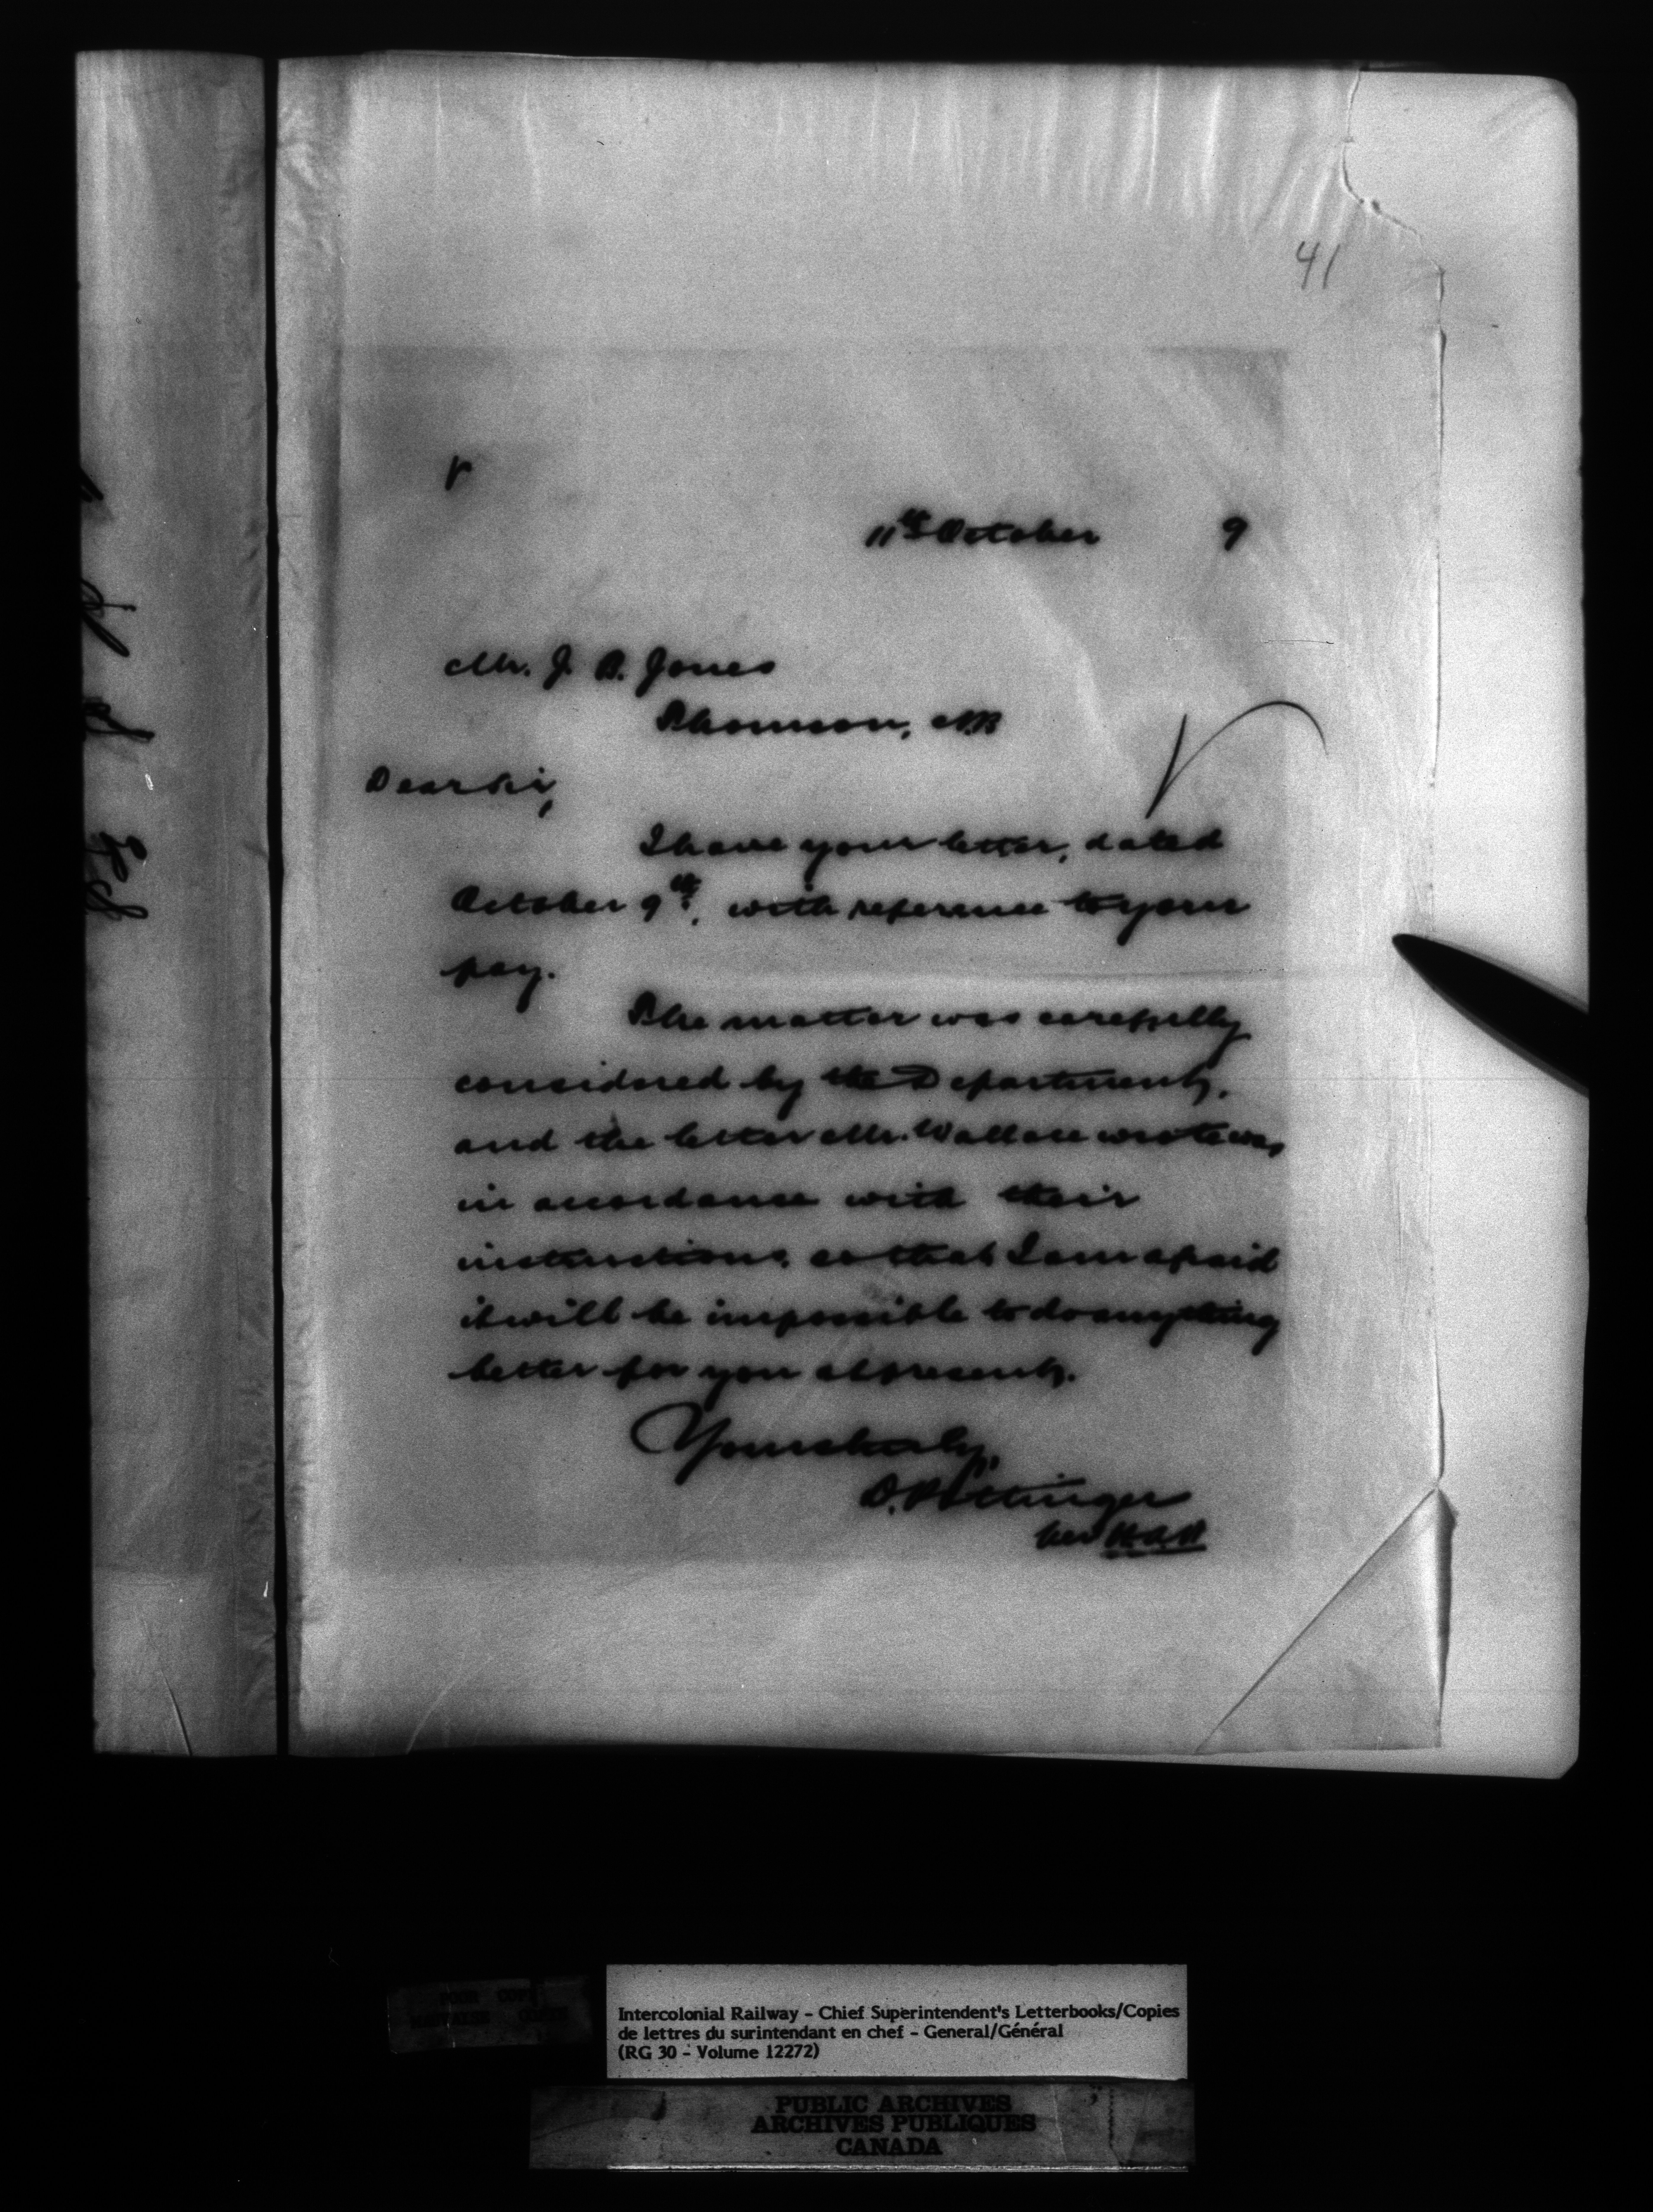 41
11th October 9
Mr. J. B. Jones
Thomson, N.B
Dear Sir,
I have your letter, dated
October 9th, with reference to your
pay.
The matter was carefully
considered by the Department,
and the letter Mr. Wallace wrote was
in accordance with their
instructions, so that I am afraid
it will be impossible to do anything
better for you at present.
Yours truly,
D. Pottinger
per
Intercolonial Railway - Chief Superintendent's Letterbooks/Copies
de lettres du surintendant en chef - General/Général
(RG 30 - Volume 12272)
PUBLIC ARCHIVES
ARCHIVES PUBLIQUES
CANADA